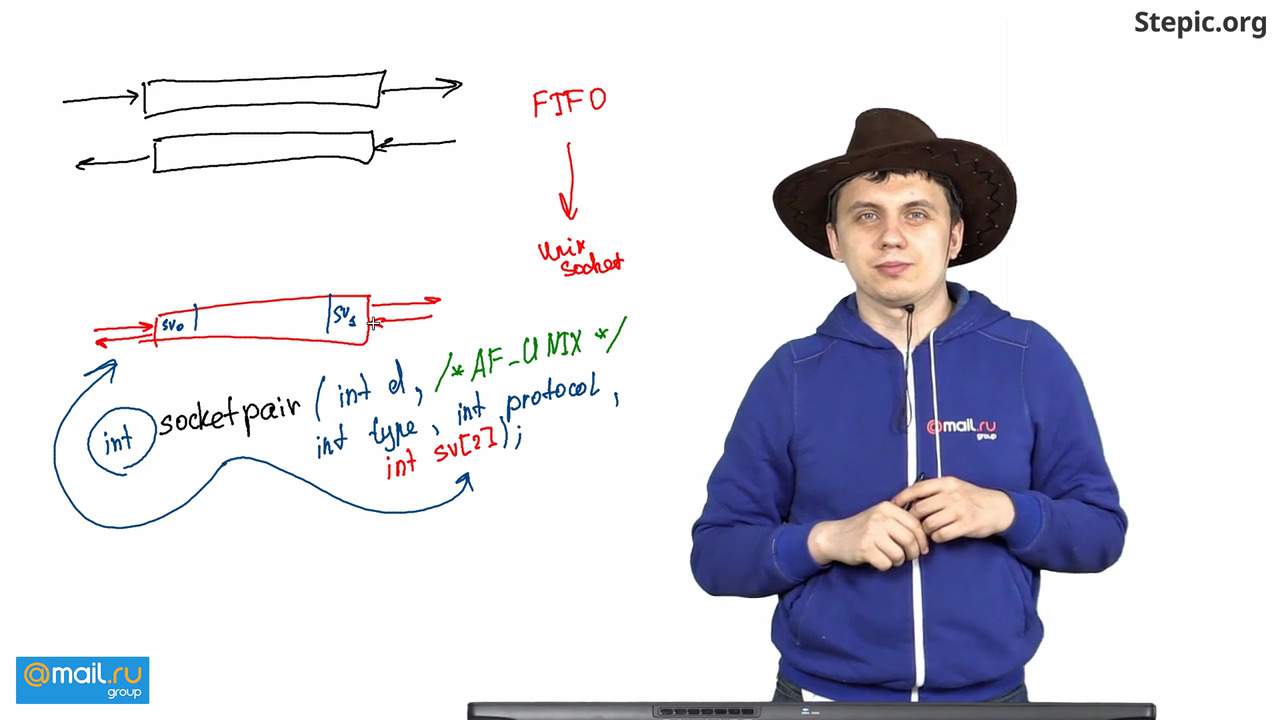 Stepic.org
FIFO
Unix
socket
sv₀
sv₁
/* AF_UNIX */
int socketpair ( int d,
int type, int protocol,
int sv[2]);
@mail.ru
group
@mail.ru
group